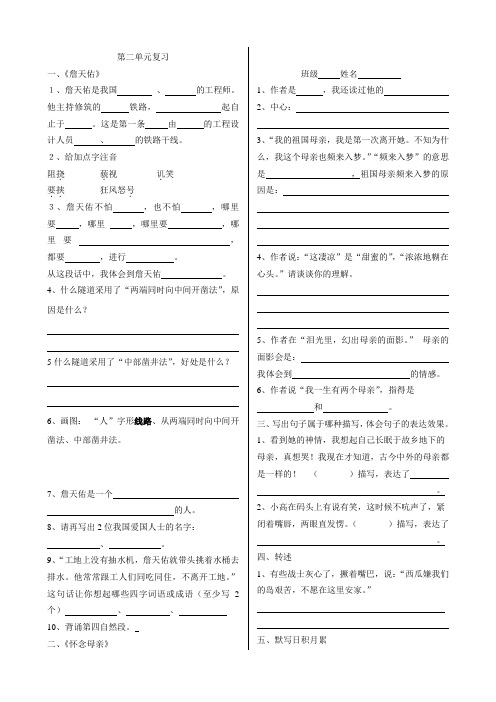 第二单元复习
一、《詹天佑》
１、詹天佑是我国　　　、　　　的工程师。
他主持修筑的　　　铁路，　　　起自
止于　　　。这是第一条　　　由　　　的工程设
计人员　　　、　　　的铁路干线。
２、给加点字注音
阻挠　　　藐视　　　讥笑
要挟　　　狂风怒号
３、詹天佑不怕　　　，也不怕　　　，哪里
要　　　，哪里　　　，哪里要　　　，哪
里 要　　　，
都要　　　，进行　　　。
从这段话中，我体会到詹天佑　　　。
4、什么隧道采用了“两端同时向中间开凿法”，原
因是什么？
5 什么隧道采用了“中部凿井法”，好处是什么？
6、画图： “人”字形线路、从两端同时向中间开
凿法、中部凿井法。
7、詹天佑是一个
的人。
8、请再写出 2 位我国爱国人士的名字：
、　　　。
9、“工地上没有抽水机，詹天佑就带头挑着水桶去
排水。他常常跟工人们同吃同住，不离开工地。”
这句话让你想起哪些四字词语或成语（至少写 2
个）　　　、　　　、
10、背诵第四自然段。
二、《怀念母亲》
班级　　　姓名
1、作者是　　　，我还读过他的
2、中心：
3、“我的祖国母亲，我是第一次离开她。不知为什
么，我这个母亲也频来入梦。”“频来入梦”的意思
是　　　，祖国母亲频来入梦的原
因是：
4、作者说：“这凄凉”是“甜蜜的”，“浓浓地糊在
心头。”请谈谈你的理解。
5、作者在“泪光里，幻出母亲的面影。” 母亲的
面影会是：
我体会到　　　的情感。
6、作者说“我一生有两个母亲”，指得是
和　　　。
三、写出句子属于哪种描写，体会句子的表达效果。
1、看到她的神情，我想起自己长眠于故乡地下的
母亲，真想哭！我现在才知道，古今中外的母亲都
是一样的！ （　　　）描写，表达了
。
2、小高在码头上有说有笑，这时候不吭声了，紧
闭着嘴唇，两眼直发愣。（　　　）描写，表达了
。
四、转述
1、有些战士灰心了，撅着嘴巴，说：“西瓜嫌我们
的岛艰苦，不愿在这里安家。”
五、默写日积月累